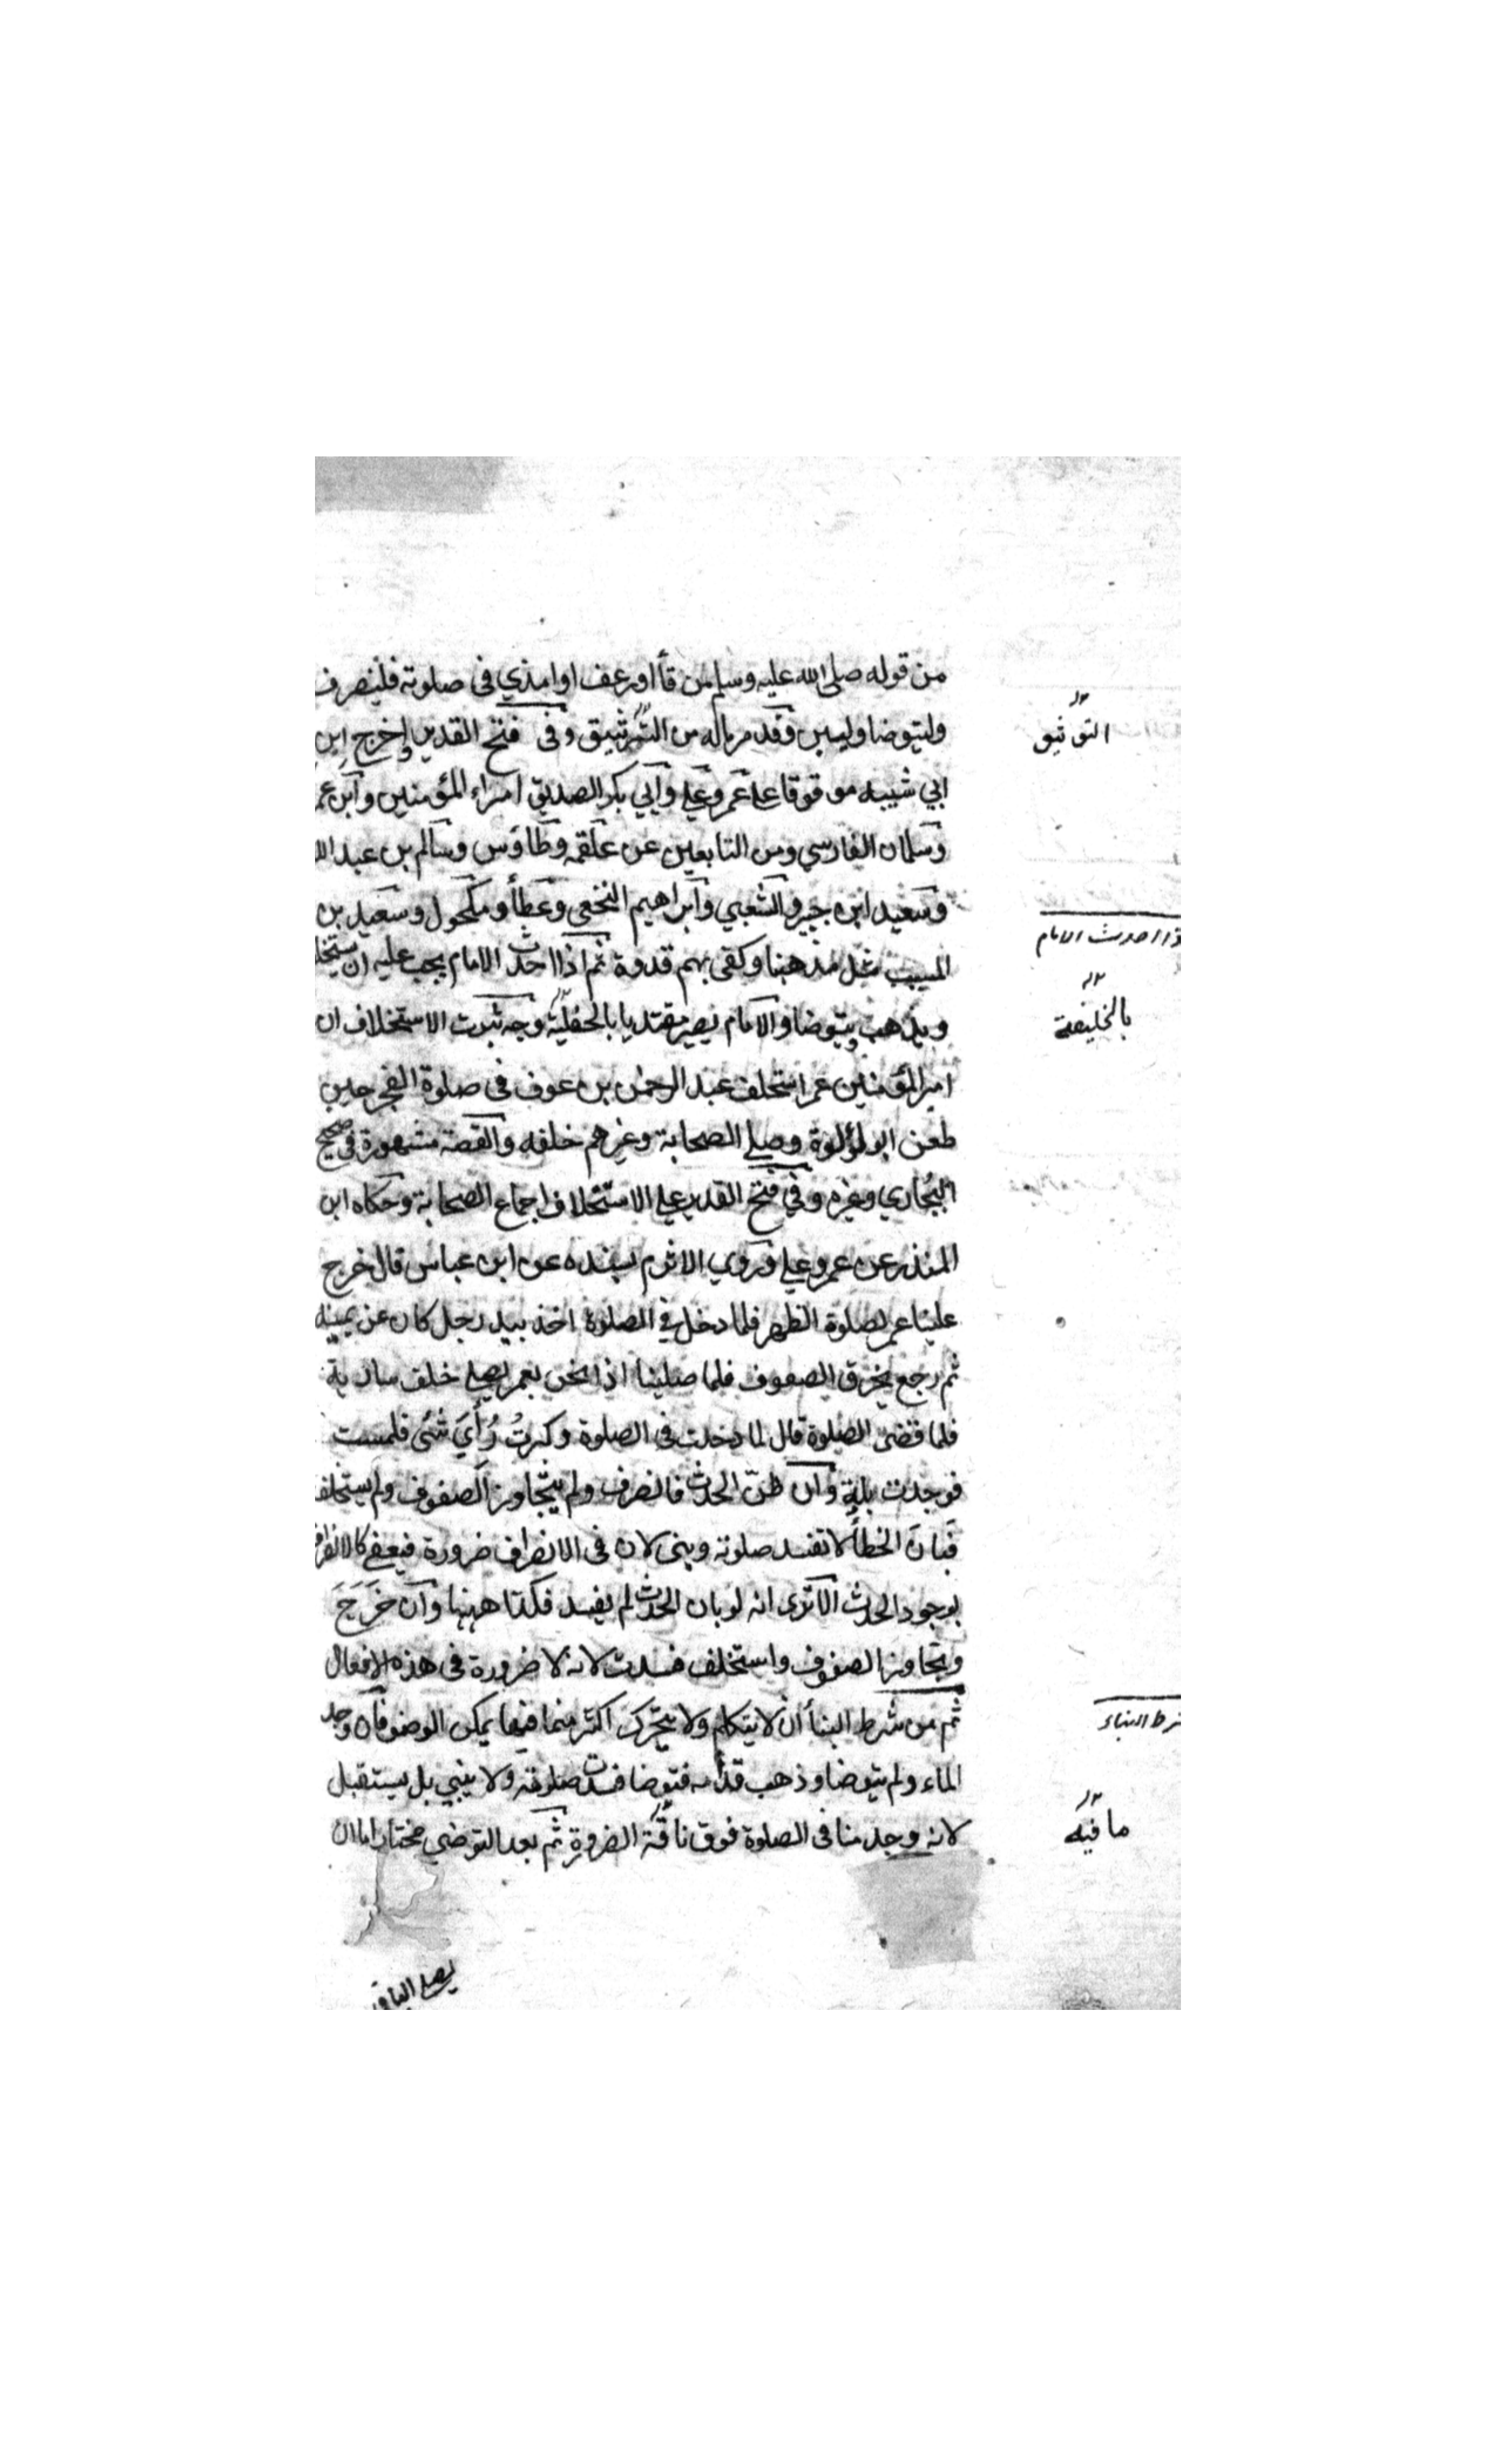 من قوله صلى الله عليه وسلم من قأ اورعف او امذي فى صلوته فلينصرف
وليتوضا وليبن وقد مر ماله من التوثيق وفى فتح القدير واخرج ابن
التوثيق
ابي شيبه موقوفا على عمر وعلي وابي بكر الصديق امراء المؤمنين وابن عمر
وسلمان الفارسي ومن التابعين عن علقمه وطاوس وسالم بن عبد الله
وسعيد ابن جبير والشعبي وابراهيم النخعي وعطأ ومكحول وسعيد بن
اذا احدث الامام
المسيب مثل مذهبنا وكفى بهم قدوة ثم اذا احدث الامام يجب عليه ان يستخلف
ويذهب ويتوضا والامام يصير مقتديا بالخليفة وجه ثبوت الاستخلاف ان
بالخليفة
امير المؤمنين عمر استخلف عبد الرحمن بن عوف فى صلوة الفجر حين
طعن ابو لؤلوة وصلى الصحابة وغيرهم خلفه والقصة مشهورة فى صحيح
البخاري وغيره وفي فتح القدير على الاستخلاف اجماع الصحابة وحكاه ابن
المنذر عن عمر وعلي وروي الاثرم بسنده عن ابن عباس قال خرج
علينا عمر لصلوة الظهر فلما دخل في الصلوة اخذ بيد رجل كان عن يمينه
ثم رجع يخرق الصفوف فلما صلينا اذا نحن بعمر يصلي خلف سارية
فلما قضى الصلوة قال لما دخلت فى الصلوة وكبرت رأي شئ فلمست
فوجدت بلة وان ظن الحدث فانصرف ولم يتجاوز الصفوف ولم يستخلف
فبان الخطأ لا تفسد صلوته ويبنى لان فى الانصراف ضرورة فيعفى كالانصراف
بوجود الحدث الا ترى انه لو بان الحدث لم يفسد فكذا ههنا وان خرج
وتجاوز الصفوف واستخلف فسدت لانه لا ضرورة فى هذه الافعال
ثم من شرط البنأ ان لا يتكلم ولا يتحرك اكثر مما فيها يمكن الوضو فان وجد
شرط البناء
الماء ولم يتوضا وذهب قدامه فتوضا فسدت صلوته ولا يبني بل يستقبل
لانه وجد منا فى الصلوة فوق ناقة الضرورة ثم بعد التوضي مختار اما ان
ما فيه
يصلي الباقي